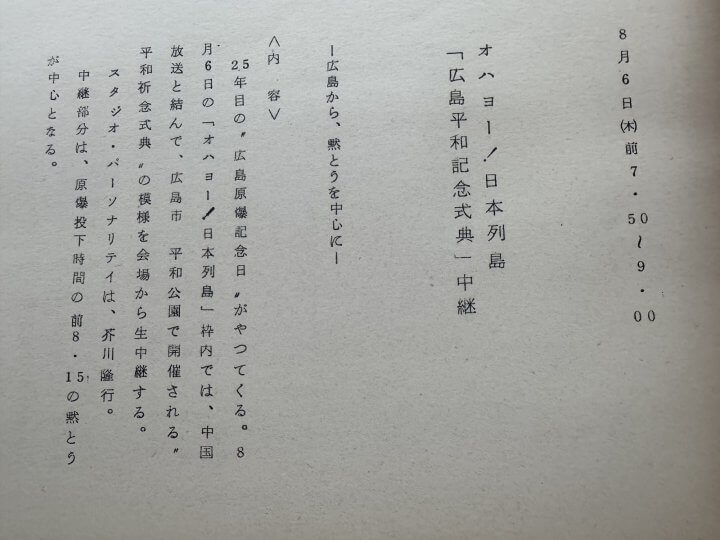 8月6日(木)前7・50〜9・00
オハョー!日本列島
「広島平和記念式典」中継
―広島から、黙とうを中心に―
<内 容>
25年目の〝広島原爆記念日〟がやつてくる。8
月6日の「オハョー!日本列島」枠内では、中国
放送と結んで、広島市 平和公園で開催される〝
平和祈念式典〟の模様を会場から生中継する。
スタジオ・パーソナリテイは、芥川隆行。
中継部分は、原爆投下時間の前8・15の黙とう
が中心となる。